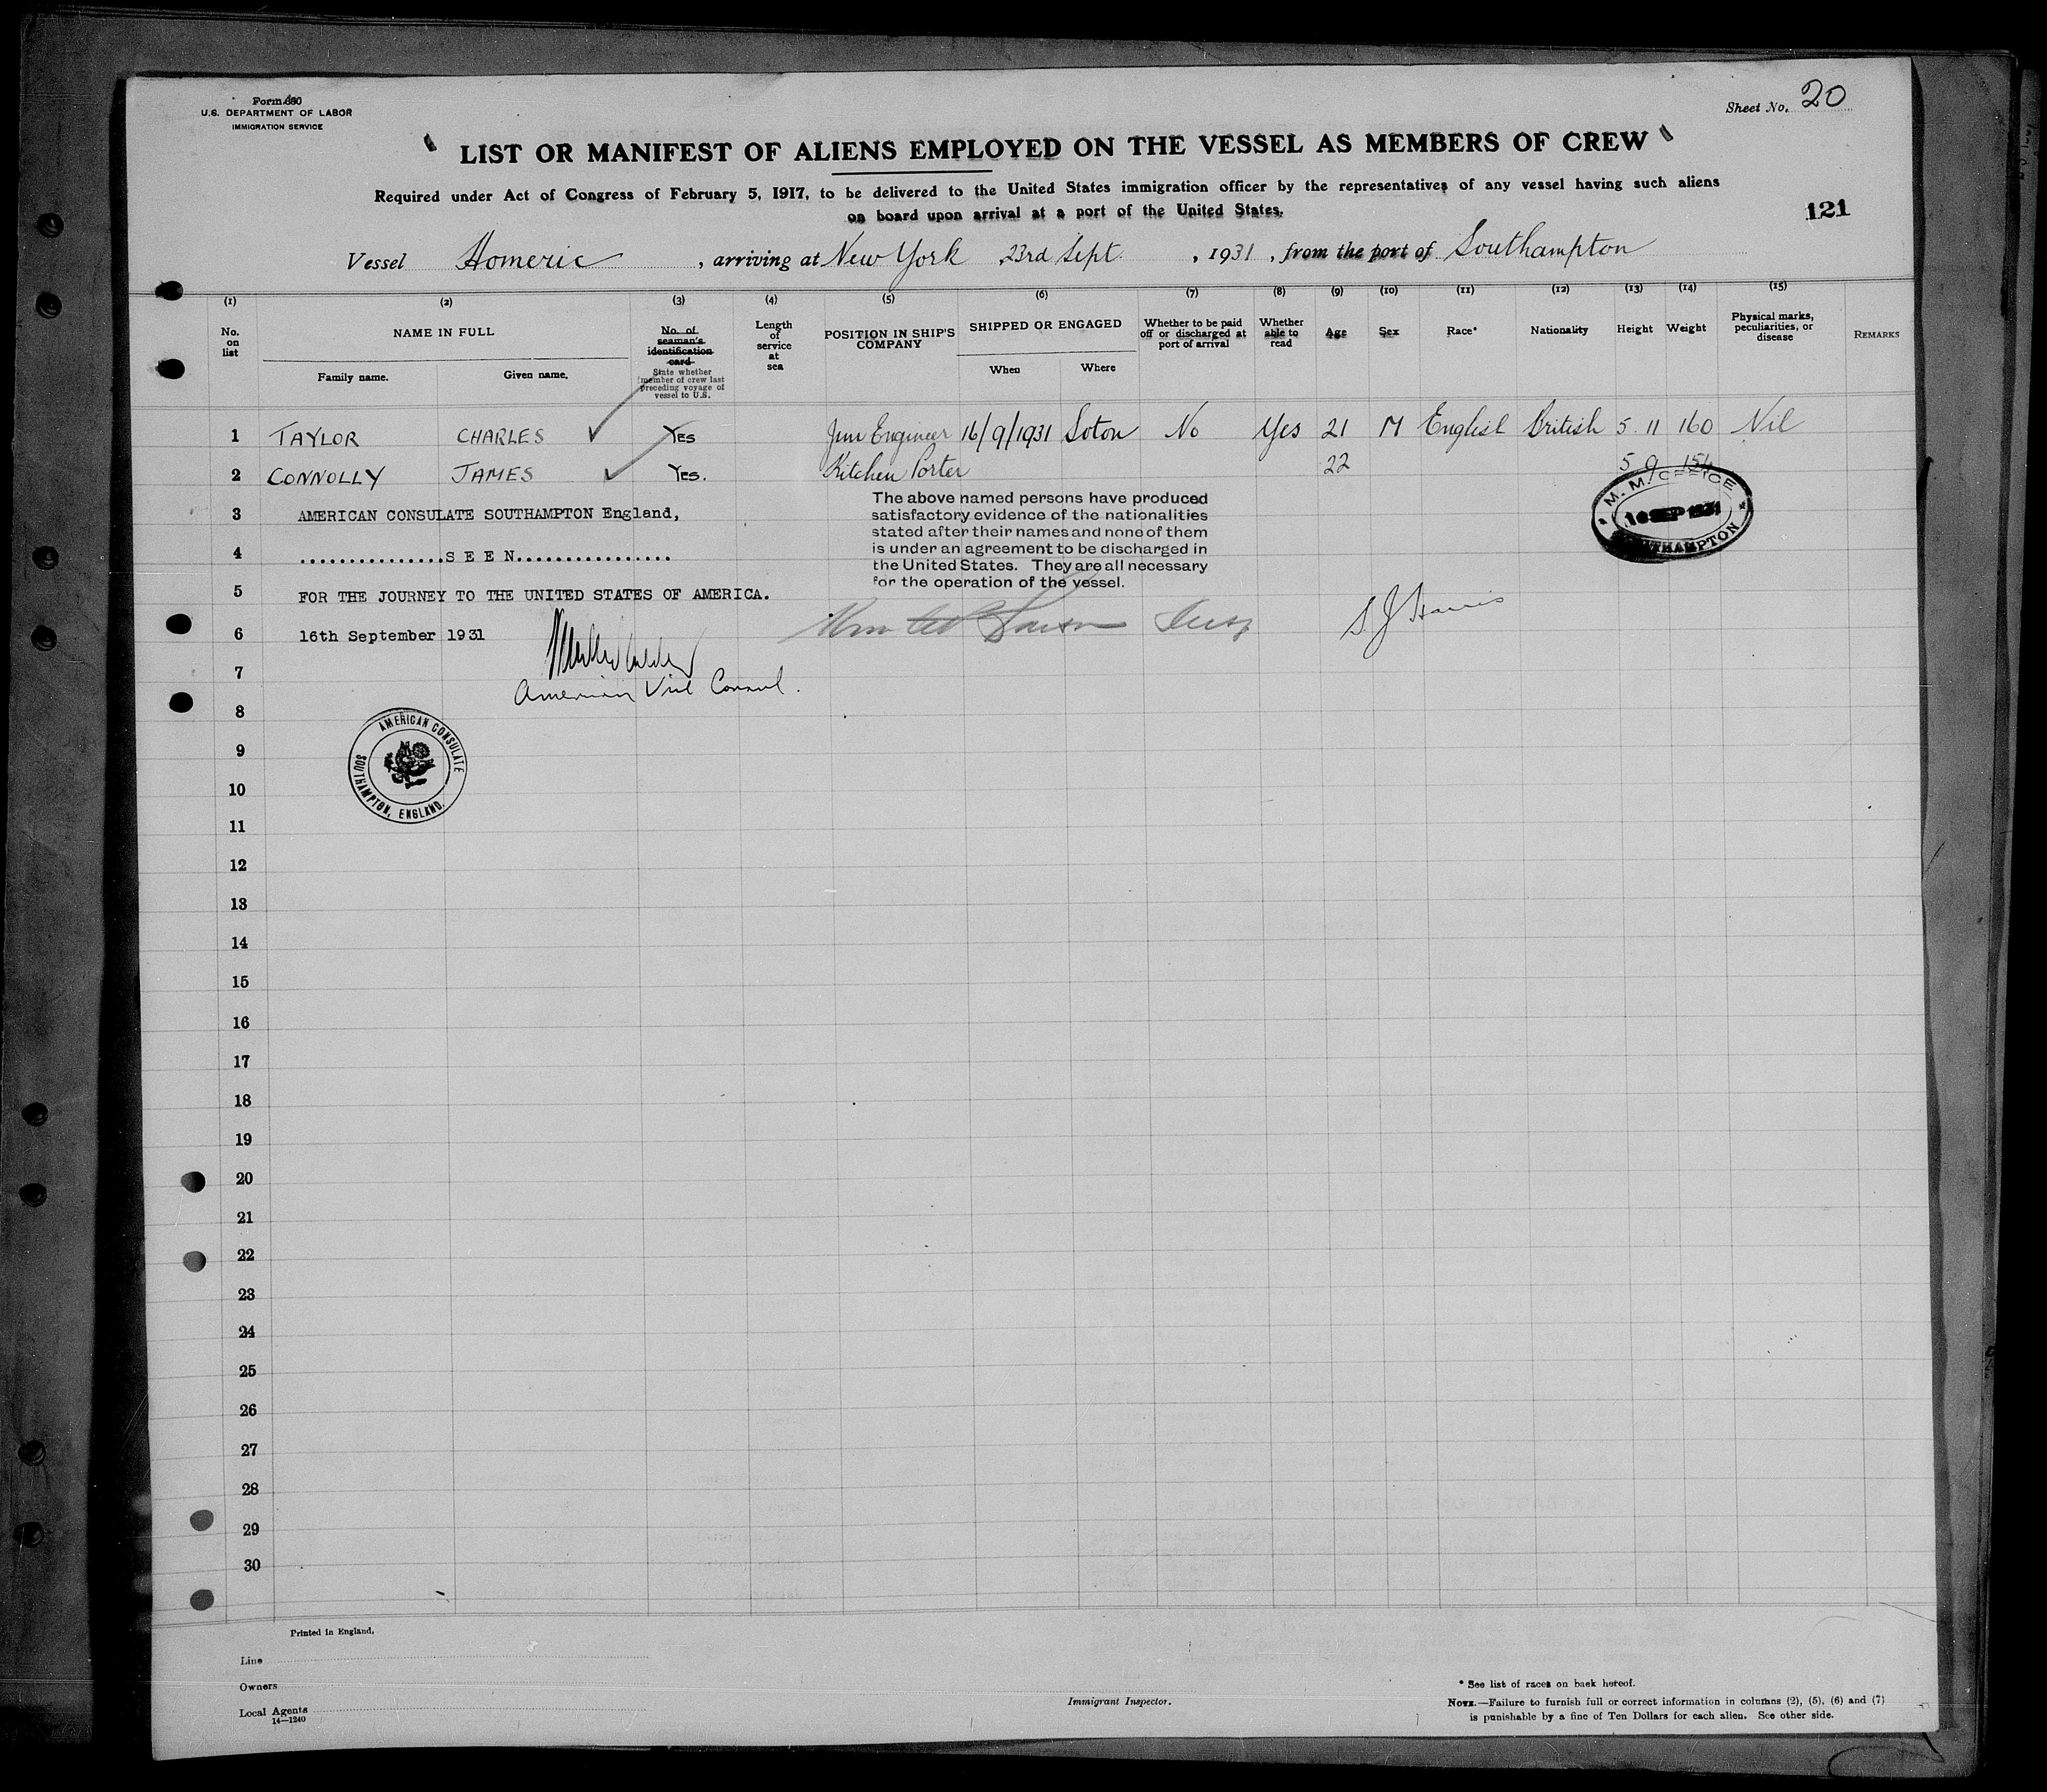 Form 680
U.S. DEPARTMENT OF LABOR
IMMIGRATION SERVICE
Sheet No. 20
LIST OR MANIFEST OF ALIENS EMPLOYED ON THE VESSEL AS MEMBERS OF CREW
Required under Act of Congress of February 5, 1917, to be delivered to the United States immigration officer by the representatives of any vessel having such aliens
on board upon arrival at a port of the United States.
121
Vessel Homeric, arriving at New York 23rd Sept., 1931, from the port of Southampton
(1) (2) (3) (4) (5) (6) (7) (8) (9) (10) (11) (12) (13) (14) (15)
No. on list
NAME IN FULL
Family name. Given name.
No. of seaman's identification card
State whether member of crew last preceding voyage of vessel to U.S.
Length of service at sea
POSITION IN SHIP'S COMPANY
SHIPPED OR ENGAGED
When Where
Whether to be paid off or discharged at port of arrival
Whether able to read
Age
Sex
Race*
Nationality
Height
Weight
Physical marks, peculiarities, or disease
REMARKS
1 TAYLOR CHARLES Yes Jun Engineer 16/9/1931 Soton No Yes 21 M English British 5 11 160 Nil
2 CONNOLLY JAMES Yes. Kitchen Porter 22 5 9 154
3 AMERICAN CONSULATE SOUTHAMPTON England,
4 ...............S E E N................
5 FOR THE JOURNEY TO THE UNITED STATES OF AMERICA.
6 16th September 1931
The above named persons have produced
satisfactory evidence of the nationalities
stated after their names and none of them
is under an agreement to be discharged in
the United States. They are all necessary
for the operation of the vessel.
M.M. OFFICE
16 SEP 1931
SOUTHAMPTON
S J Harris
American Vice Consul.
AMERICAN CONSULATE
SOUTHAMPTON, ENGLAND.
7
8
9
10
11
12
13
14
15
16
17
18
19
20
21
22
23
24
25
26
27
28
29
30
Printed in England.
Line
Owners
Local Agents
14—1240
Immigrant Inspector.
* See list of races on back hereof.
NOTE.—Failure to furnish full or correct information in columns (2), (5), (6) and (7)
is punishable by a fine of Ten Dollars for each alien. See other side.